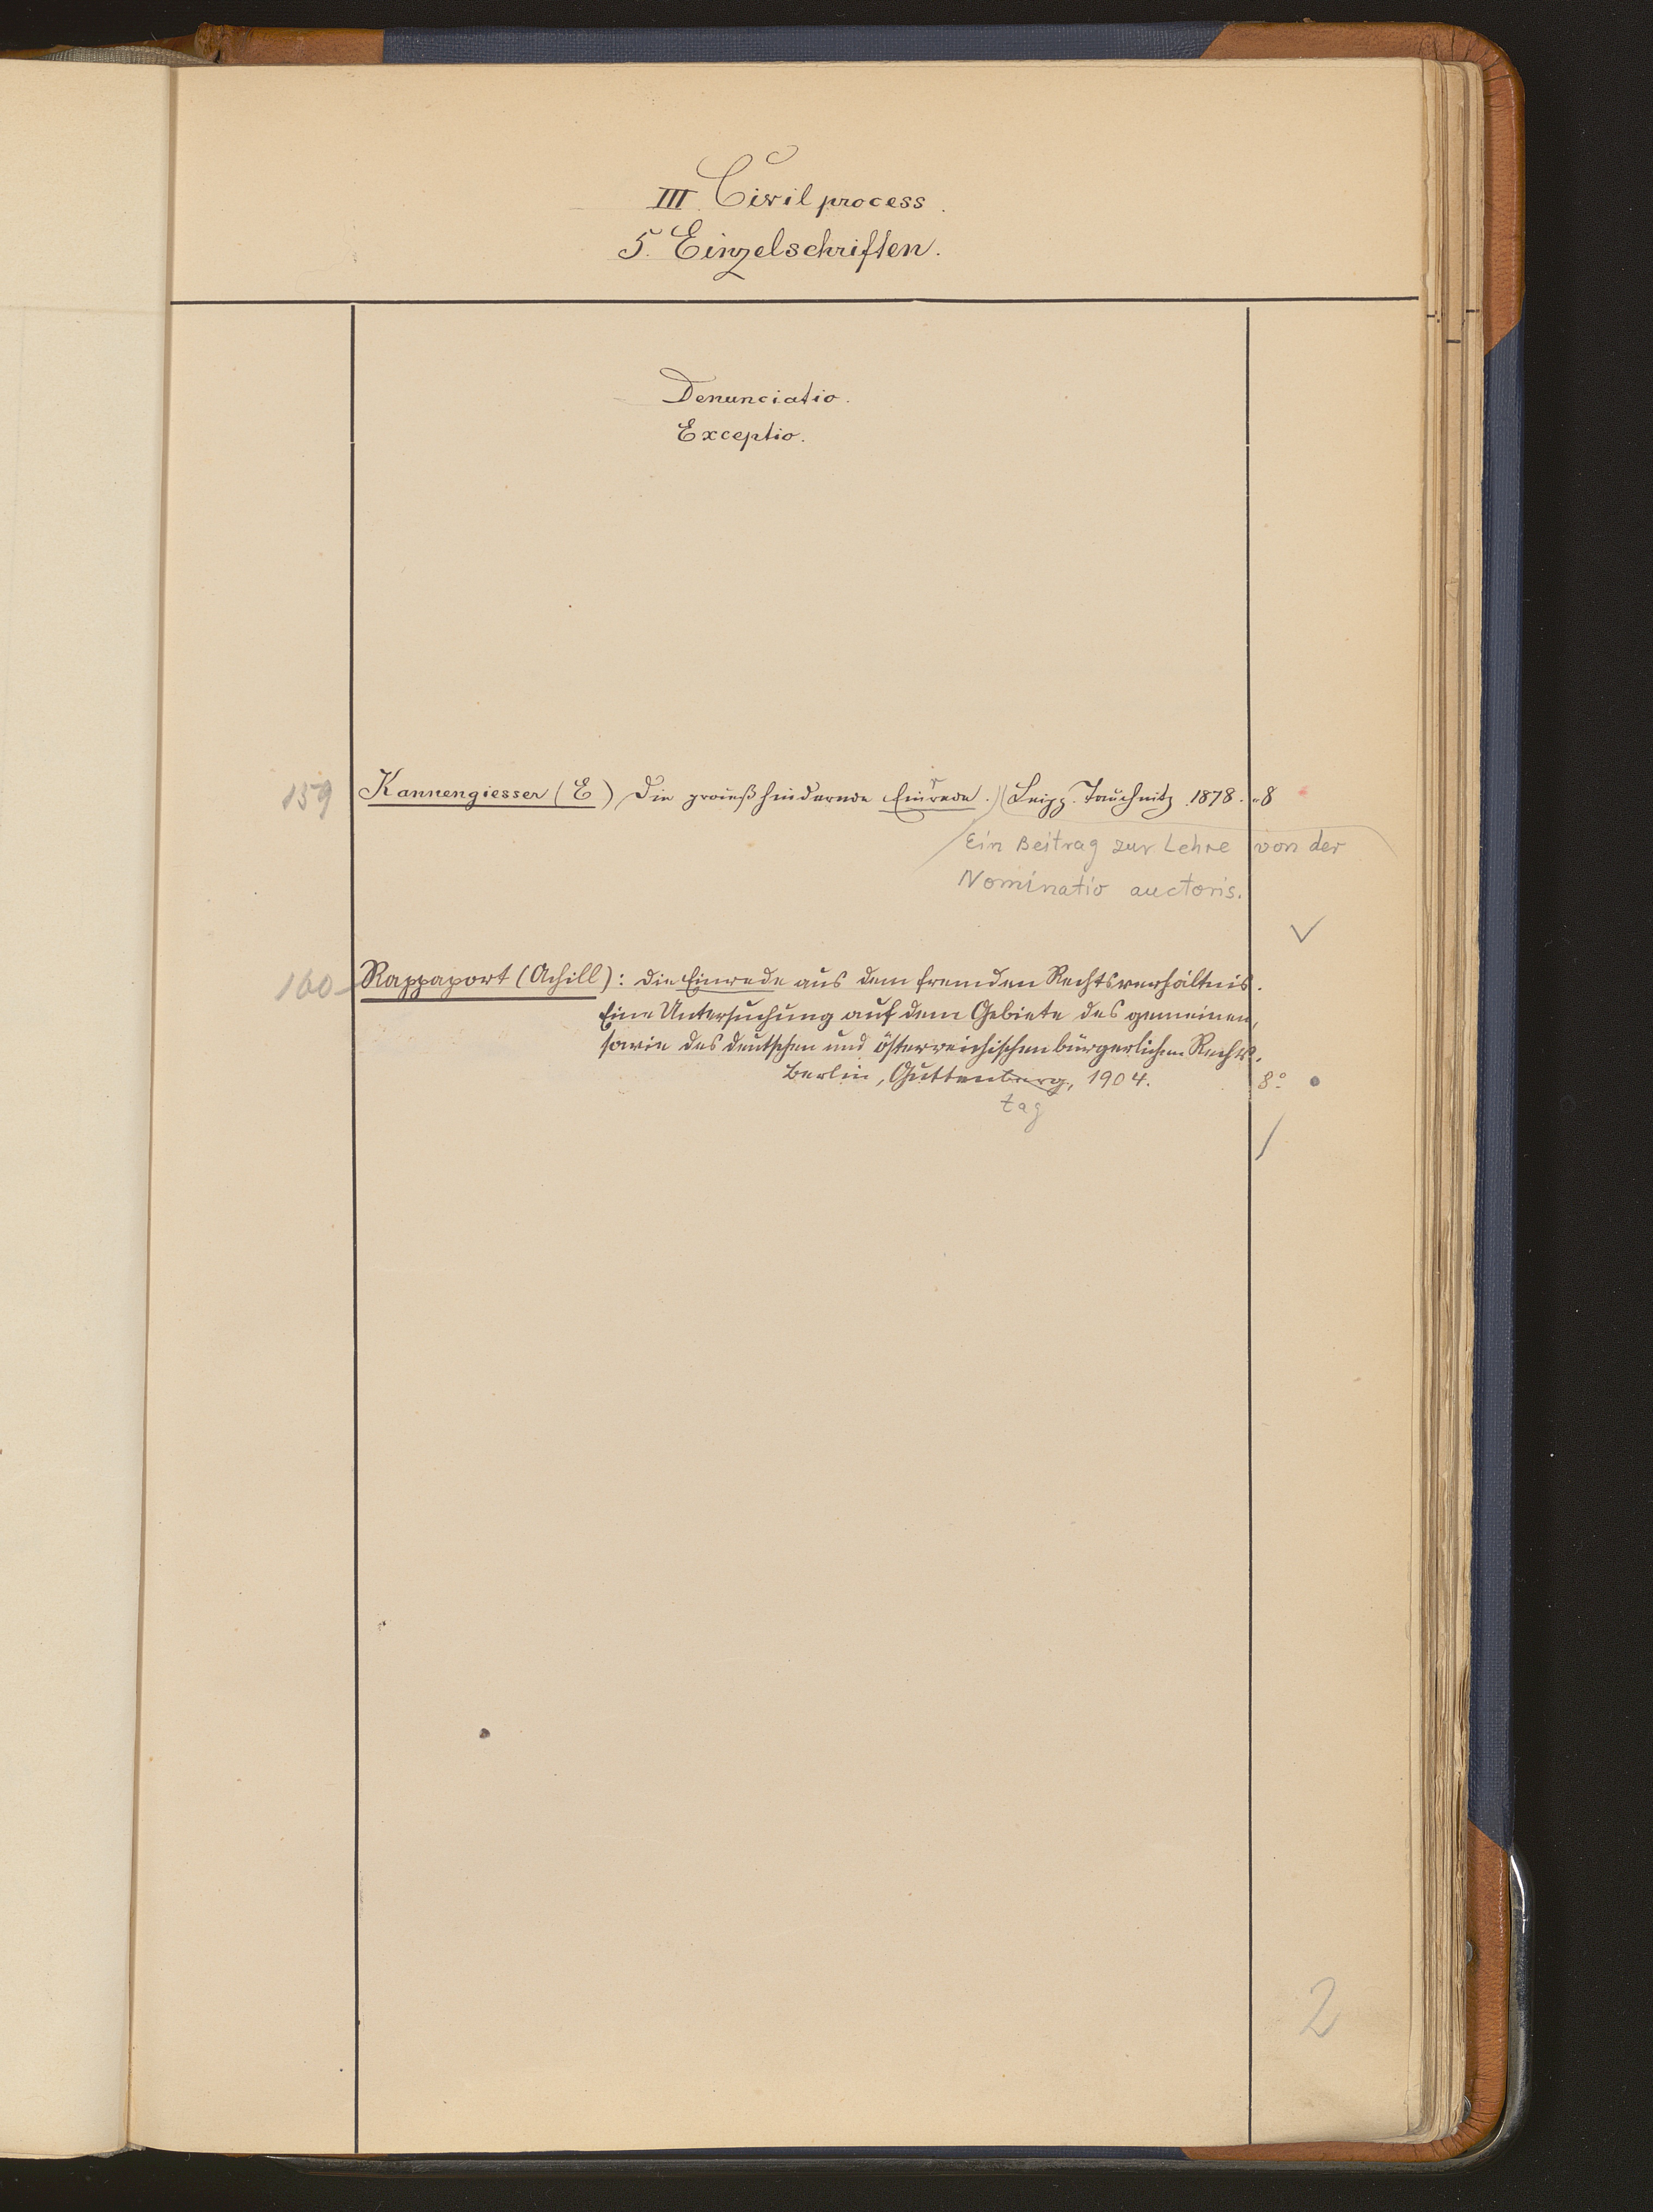 III Civilprocess.
5. Einzelschriften.
Denunciatio.
Exceptio.
159 Kannengiesser (E) Die prozeßhindernde Einrede. (Leipz. Tauchnitz 1878. 8
Ein Beitrag zur Lehre von der
Nominatio auctoris.
160 Rappaport (Achill): Die Einrede aus dem fremden Rechtsverhältnis.
Eine Untersuchung auf dem Gebiete des gemeinen,
sowie des deutschen und österreichischen bürgerlichen Rechts.
Berlin, Guttenberg, 1904. 8°
tag
2